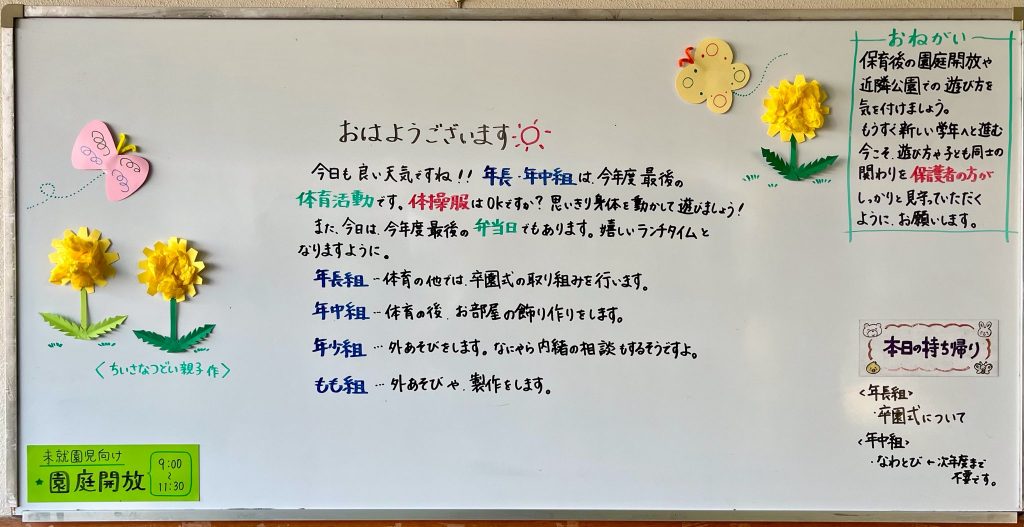 おはようございます
今日も良い天気ですね!! 年長・年中組は、今年度最後の
体育活動です。体操服はOKですか?思いきり身体を動かして遊びましょう!
また、今日は、今年度最後の弁当日でもあります。嬉しいランチタイムと
なりますように。
年長組…体育の他では、卒園式の取り組みを行います。
年中組…体育の後、お部屋の飾り作りをします。
年少組…外あそびをします。なにやら内緒の相談もするそうですよ。
もも組…外あそびや、製作をします。
おねがい
保育後の園庭開放や
近隣公園での遊び方を
気を付けましょう。
もうすぐ新しい学年へと進む
今こそ、遊び方や子ども同士の
関わりを保護者の方が
しっかりと見守っていただく
ように、お願いします。
本日の持ち帰り
<年長組>
・卒園式について
<年中組>
・なわとび ←次年度まで
不要です。
<ちいさなつどい親子作>
未就園児向け
★園庭開放
9:00
~
11:30